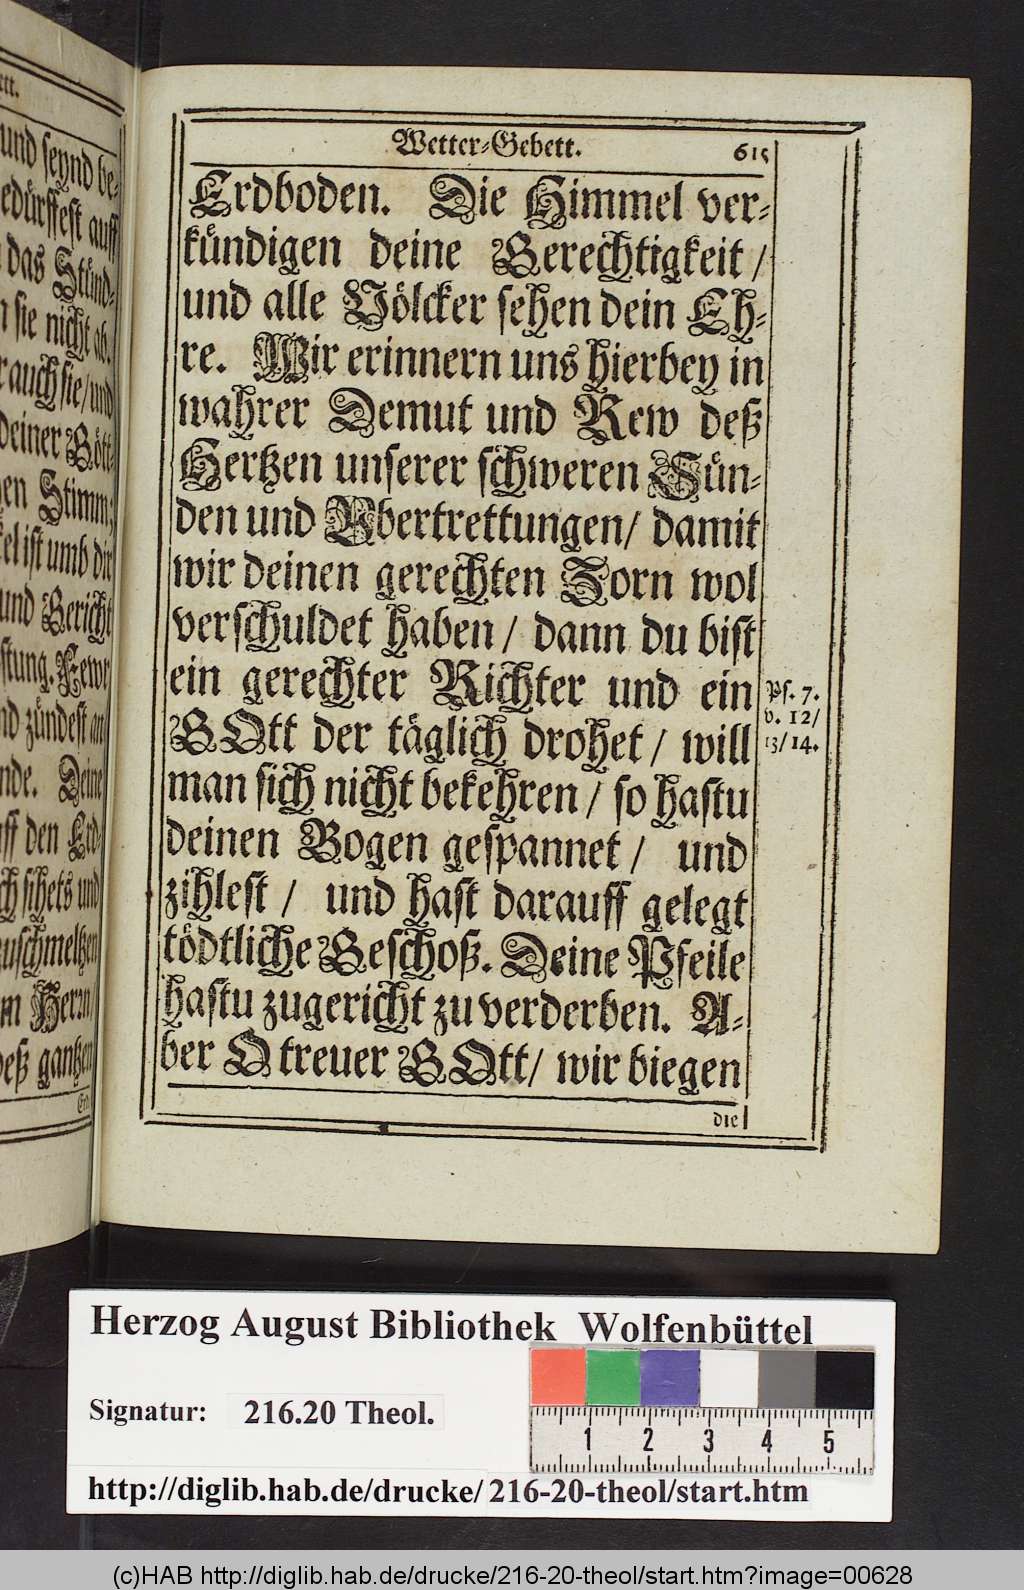 ett.
und seynd be-
edürffest auff
das Stünd-
n sie nicht ab.
r auch sie / und
deiner Gött-
en Stimm;
el ist umb dir
und Gericht
stung. Fewr
nd zündest an
nde. Deine
uff den Erd-
ch sihets und
zuschmeltzen
m Herrn
deß gantzen
Erd-
Wetter-Gebett. 615
Erdboden. Die Himmel ver-
kündigen deine Gerechtigkeit /
und alle Völcker sehen dein Eh-
re. Wir erinnern uns hierbey in
wahrer Demut und Rew deß
Hertzen unserer schweren Sün-
den und Ubertrettungen / damit
wir deinen gerechten Zorn wol
verschuldet haben / dann du bist
ein gerechter Richter und ein
GOtt der täglich drohet / will
man sich nicht bekehren / so hastu
deinen Bogen gespannet / und
zihlest / und hast darauff gelegt
tödtliche Geschoß. Deine Pfeile
hastu zugericht zu verderben. A-
ber O treuer GOtt / wir biegen
die
Ps. 7.
v. 12/
13/14.
Herzog August Bibliothek Wolfenbüttel
Signatur: 216.20 Theol.
1 2 3 4 5
http://diglib.hab.de/drucke/216-20-theol/start.htm
(c)HAB http://diglib.hab.de/drucke/216-20-theol/start.htm?image=00628